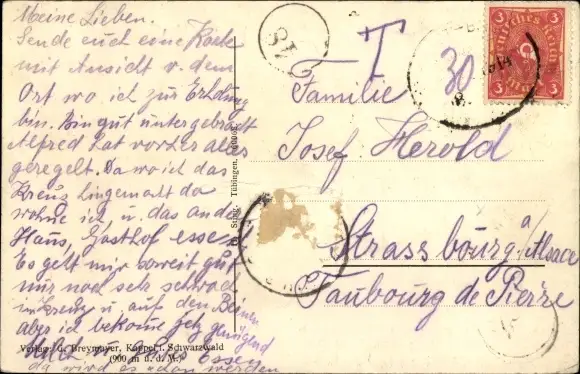 Meine Lieben.
Sende euch eine Karte
mit Ansicht v. dem
Ort wo ich zur Erholung
bin. Bin gut untergebracht
Alfred hat vorher alles
geregelt. Da wo ich das
Kreuz hingemalt da
wohne ich, u. das andere
Haus, Gasthof essen
Es geht mir soweit gut
nur noch sehr schwach
im Kreuz u. auf den Beinen
aber ich bekome jetz genügend
Milch u. gutes Essen
da wird es dan werden
Verlag: G. Breymayer, Kappel i. Schwarzwald
(900 m ü. d. M.)
Tübingen.
31
T
30
Deutsches Reich
3 3
3 3
Familie
Josef Herold
Strassbourg a/Alsace
Faubourg de Pierre